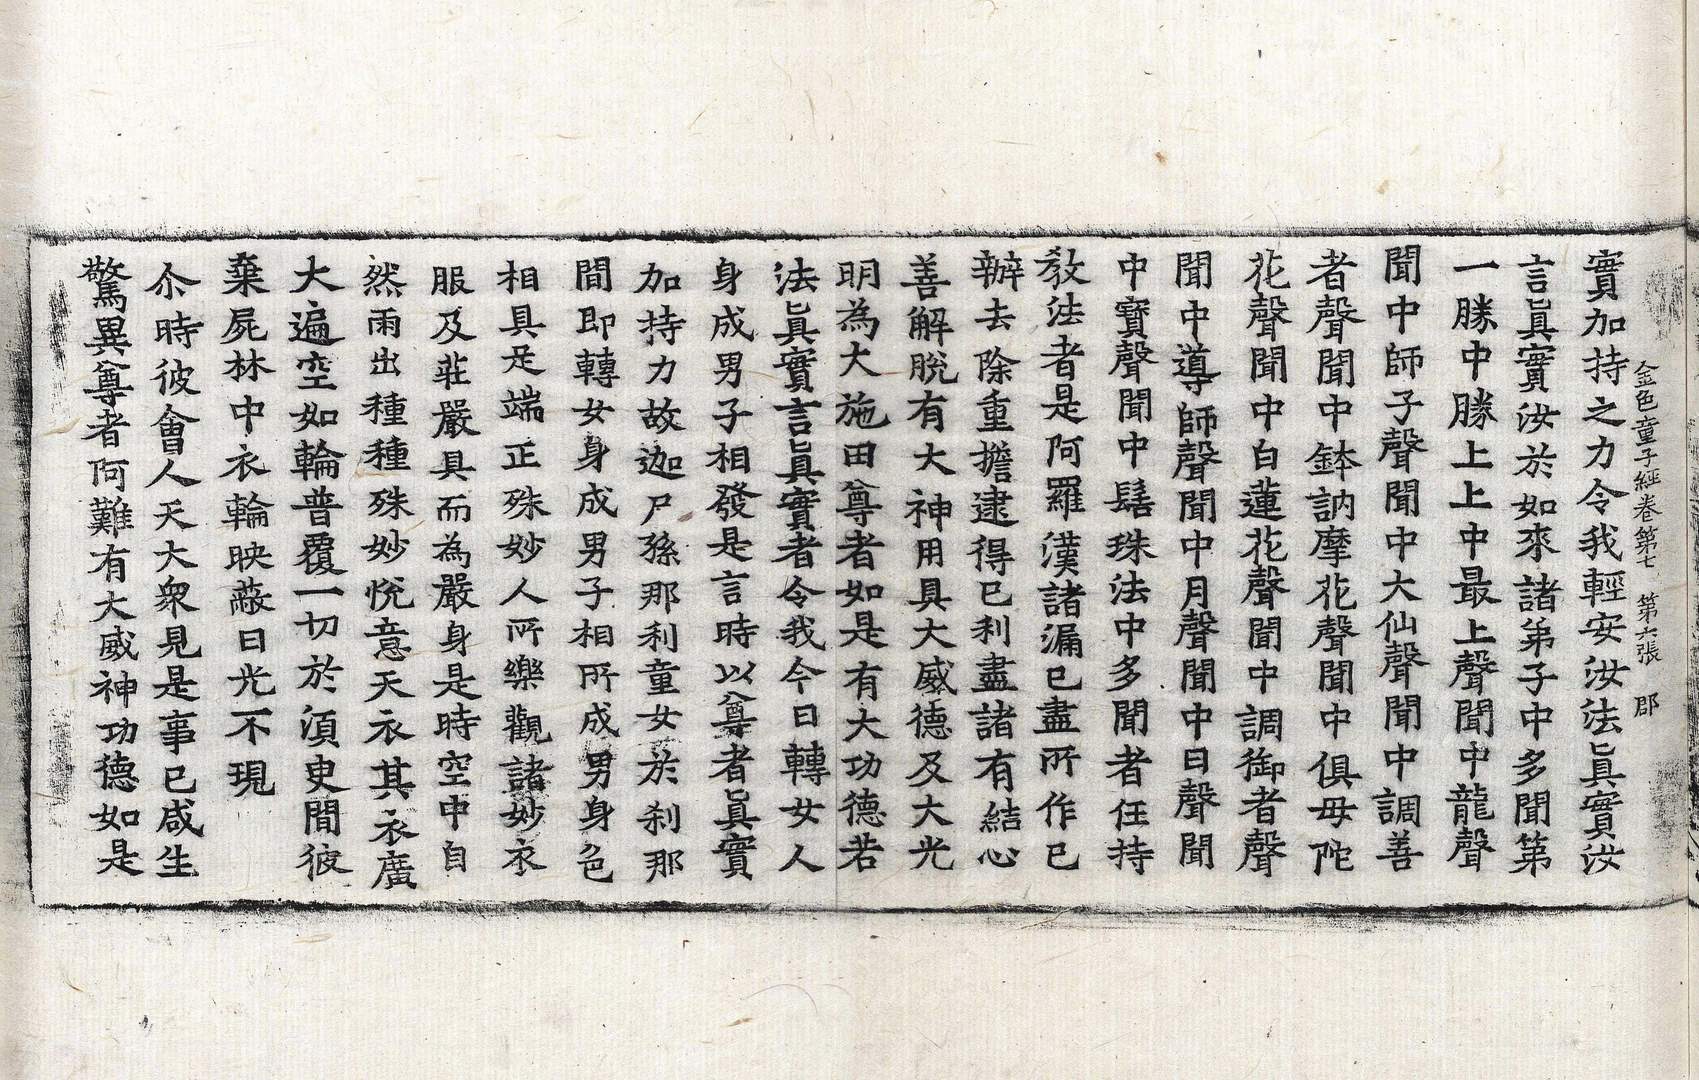 金色童子經卷第七 第六張 郡
實加持之力令我輕安汝法眞實汝
言眞實汝於如來諸弟子中多聞第
一勝中勝上上中最上聲聞中龍聲
聞中師子聲聞中大仙聲聞中調善
者聲聞中鉢訥摩花聲聞中俱毋陀
花聲聞中白蓮花聲聞中調御者聲
聞中導師聲聞中月聲聞中日聲聞
中寶聲聞中髻珠法中多聞者任持
敎法者是阿羅漢諸漏已盡所作已
辦去除重擔逮得已利盡諸有結心
善解脫有大神用具大威德及大光
明為大施田尊者如是有大功德若
法眞實言眞實者令我今日轉女人
身成男子相發是言時以尊者眞實
加持力故迦尸孫那利童女於刹那
間即轉女身成男子相所成男身色
相具足端正殊妙人所樂觀諸妙衣
服及莊嚴具而為嚴身是時空中自
然雨出種種殊妙悅意天衣其衣廣
大遍空如輪普覆一切於須臾間彼
棄屍林中衣輪映蔽日光不現
尒時彼會人天大衆見是事已咸生
驚異尊者阿難有大威神功德如是